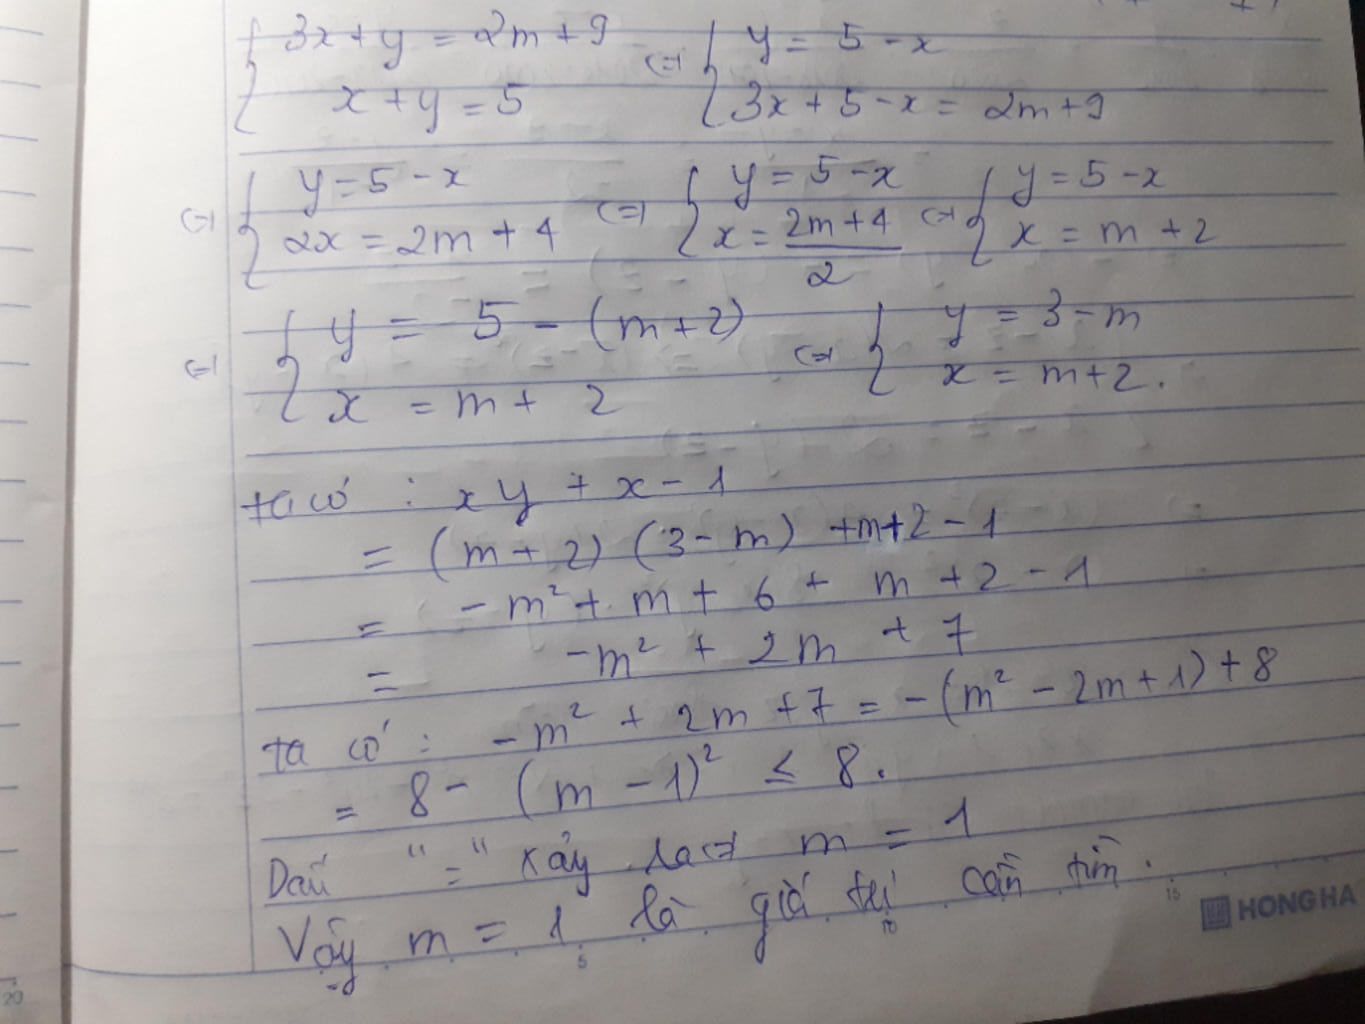 { 3x + y = 2m + 9 <=> { y = 5 - x
x + y = 5 3x + 5 - x = 2m + 9
<=> { y = 5 - x <=> { y = 5 - x <=> { y = 5 - x
2x = 2m + 4 x = (2m + 4)/2 x = m + 2
<=> { y = 5 - (m + 2) <=> { y = 3 - m
x = m + 2 x = m + 2.
ta có : xy + x - 1
= (m + 2) (3 - m) + m + 2 - 1
= - m² + m + 6 + m + 2 - 1
= - m² + 2m + 7
ta có : - m² + 2m + 7 = - (m² - 2m + 1) + 8
= 8 - (m - 1)² ≤ 8.
Dấu "=" xảy ra <=> m = 1
Vậy m = 1 là giá trị cần tìm.
5 10 15 HONG HA
20